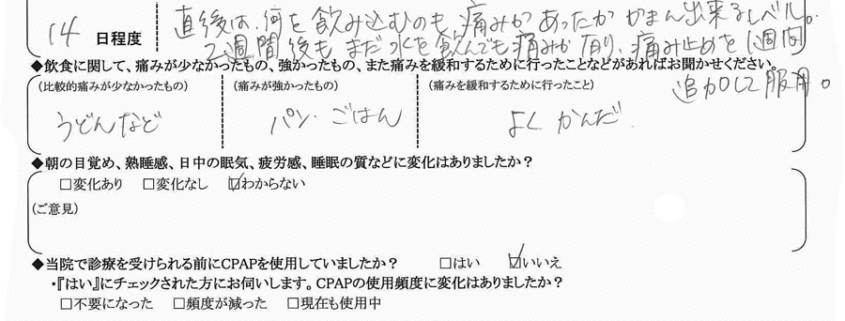 直後は、何を飲み込むのも痛みがあったがかまん出来るレベル。
14 日程度
2週間後もまだ水を飲んでも痛みが有り、痛み止めを1週間
◆飲食に関して、痛みが少なかったもの、強かったもの、また痛みを緩和するために行ったことなどがあればお聞かせください。
追加して服用。
(比較的痛みが少なかったもの) (痛みが強かったもの) (痛みを緩和するために行ったこと)
うどんなど パン・ごはん よくかんだ
◆朝の目覚め、熟睡感、日中の眠気、疲労感、睡眠の質などに変化はありましたか?
□変化あり □変化なし ☑わからない
(ご意見)
◆当院で診療を受けられる前にCPAPを使用していましたか? □はい ☑いいえ
・『はい』にチェックされた方にお伺いします。CPAPの使用頻度に変化はありましたか?
□不要になった □頻度が減った □現在も使用中